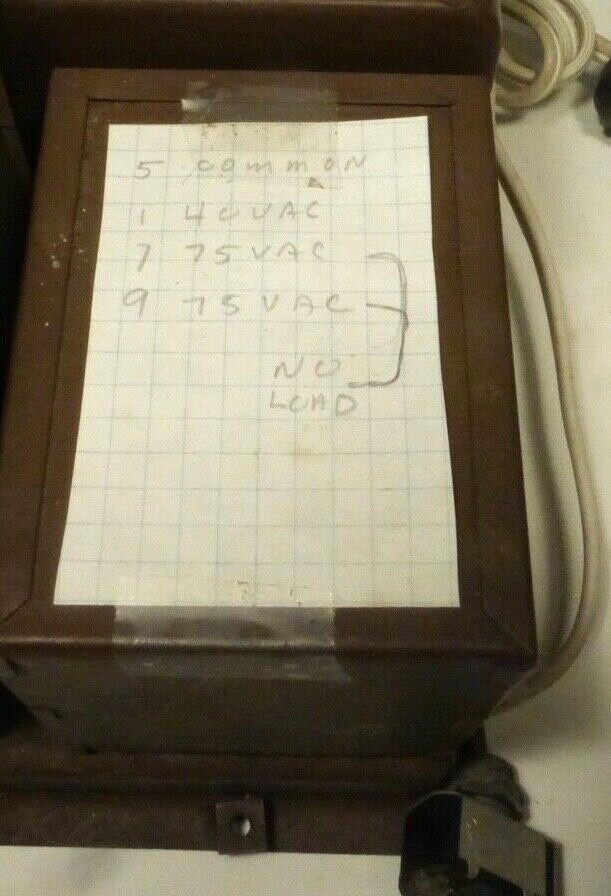 5 COMMON
1 40 VAC
7 75 VAC
9 75 VAC
NO
LOAD